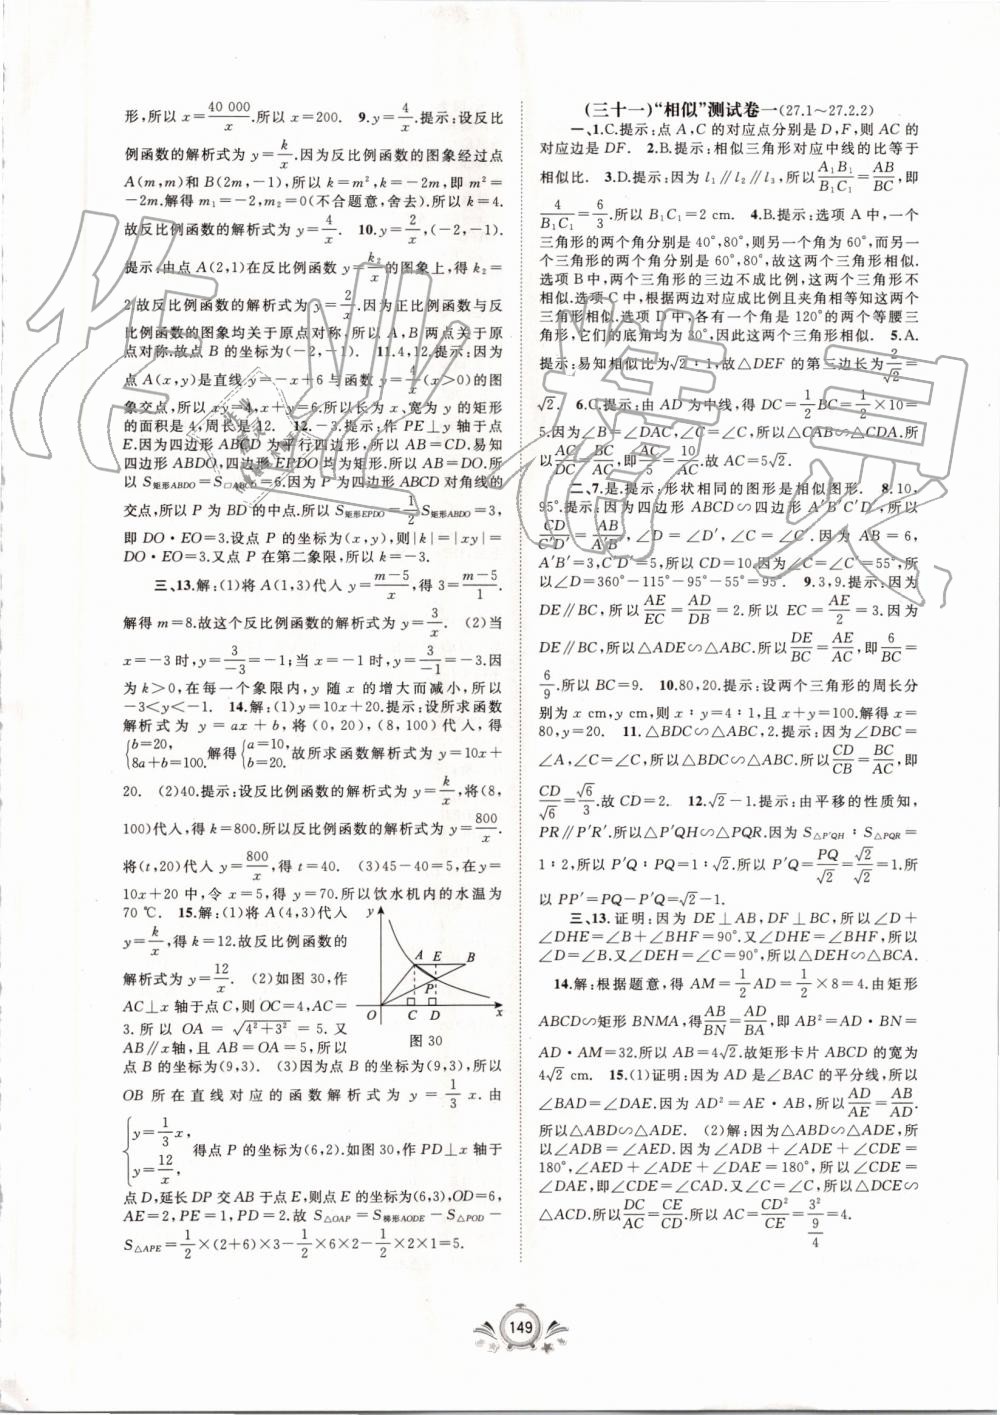 形,所以 x=40 000/x.所以 x=200. 9.y=4/x.提示:设反比
例函数的解析式为 y=k/x.因为反比例函数的图象经过点
A(m,m)和 B(2m,-1),所以 k=m²,k=-2m,即 m²=
-2m.解得 m₁=-2,m₂=0(不合题意,舍去).所以 k=4.
故反比例函数的解析式为 y=4/x. 10.y=2/x,(-2,-1).
提示:由点 A(2,1)在反比例函数 y=k₂/x 的图象上,得 k₂=
2.故反比例函数的解析式为 y=2/x.因为正比例函数与反
比例函数的图象均关于原点对称.所以 A,B 两点关于原
点对称.故点 B 的坐标为(-2,-1). 11.4,12.提示:因为
点 A(x,y)是直线 y=-x+6 与函数 y=4/x(x>0)的图
象交点,所以 xy=4,x+y=6.所以长为 x、宽为 y 的矩形
的面积是 4,周长是 12. 12.-3.提示:作 PE⊥y 轴于点
E.因为四边形 ABCD 为平行四边形,所以 AB=CD.易知
四边形 ABDO,四边形 EPDO 均为矩形.所以 AB=DO.所
以 S矩形ABDO=S□ABCD=6.因为 P 为四边形 ABCD 对角线的
交点,所以 P 为 BD 的中点.所以 S矩形EPDO=1/2S矩形ABDO=3,
即 DO·EO=3.设点 P 的坐标为(x,y),则|k|=|xy|=
DO·EO=3.又点 P 在第二象限,所以 k=-3.
三、13.解:(1)将 A(1,3)代入 y=(m-5)/x,得 3=(m-5)/1.
解得 m=8.故这个反比例函数的解析式为 y=3/x. (2)当
x=-3 时,y=3/-3=-1;当 x=-1 时,y=3/-1=-3.因
为 k>0,在每一个象限内,y 随 x 的增大而减小,所以
-3<y<-1. 14.解:(1)y=10x+20.提示:设所求函数
解析式为 y=ax+b,将(0,20),(8,100)代入,得
{b=20, 8a+b=100. 解得{a=10, b=20. 故所求函数解析式为 y=10x+
20. (2)40.提示:设反比例函数的解析式为 y=k/x,将(8,
100)代入,得 k=800.所以反比例函数的解析式为 y=800/x.
将(t,20)代入 y=800/x,得 t=40. (3)45-40=5,在 y=
10x+20 中,令 x=5,得 y=70.所以饮水机内的水温为
70 ℃. 15.解:(1)将 A(4,3)代入
y=k/x,得 k=12.故反比例函数的
解析式为 y=12/x. (2)如图 30,作
AC⊥x 轴于点 C,则 OC=4,AC=
3.所以 OA=√(4²+3²)=5.又
AB∥x 轴,且 AB=OA=5,所以
点 B 的坐标为(9,3). (3)因为点 B 的坐标为(9,3),所以
OB 所在直线对应的函数解析式为 y=1/3 x.由
{y=1/3 x, y=12/x, 得点 P 的坐标为(6,2).如图 30,作 PD⊥x 轴于
点 D,延长 DP 交 AB 于点 E,则点 E 的坐标为(6,3),OD=6,
AE=2,PE=1,PD=2.故 S△OAP=S梯形AODE-S△POD-
S△APE=1/2×(2+6)×3-1/2×6×2-1/2×2×1=5.
y
A E B
P
O C D x
图 30
(三十一)“相似”测试卷一(27.1～27.2.2)
一、1.C.提示:点 A,C 的对应点分别是 D,F,则 AC 的
对应边是 DF. 2.B.提示:相似三角形对应中线的比等于
相似比. 3.D.提示:因为 l₁∥l₂∥l₃,所以A₁B₁/B₁C₁=AB/BC,即
4/B₁C₁=6/3.所以 B₁C₁=2 cm. 4.B.提示:选项 A 中,一个
三角形的两个角分别是 40°,80°,则另一个角为 60°,而另一
个三角形的两个角分别是 60°,80°,故这两个三角形相似.
选项 B 中,两个三角形的三边不成比例,这两个三角形不
相似.选项 C 中,根据两边对应成比例且夹角相等知这两
个三角形相似.选项 D 中,各有一个角是 120°的两个等腰三
角形,它们的底角均为 30°,因此这两个三角形相似. 5.A.
提示:易知相似比为√2∶1,故△DEF 的第三边长为2/√2=
√2. 6.C.提示:由 AD 为中线,得 DC=1/2BC=1/2×10=
5.因为∠B=∠DAC,∠C=∠C,所以△CAB∽△CDA.所
以AC/DC=BC/AC,即AC/5=10/AC.故 AC=5√2.
二、7.是.提示:形状相同的图形是相似图形. 8.10,
95°.提示:因为四边形 ABCD∽四边形 A′B′C′D′,所以
CD/C′D′=AB/A′B′,∠D=∠D′,∠C=∠C′.因为 AB=6,
A′B′=3,C′D′=5,所以 CD=10.因为∠C=∠C′=55°,所
以∠D=360°-115°-95°-55°=95°. 9.3,9.提示:因为
DE∥BC,所以AE/EC=AD/DB=2.所以 EC=AE/2=3.因为
DE∥BC,所以△ADE∽△ABC.所以DE/BC=AE/AC,即6/BC=
6/9.所以 BC=9. 10.80,20.提示:设两个三角形的周长分
别为 x cm,y cm,则 x∶y=4∶1,且 x+y=100.解得 x=
80,y=20. 11.△BDC∽△ABC,2.提示:因为∠DBC=
∠A,∠C=∠C,所以△BDC∽△ABC.所以CD/CB=BC/AC,即
CD/√6=√6/3.故 CD=2. 12.√2-1.提示:由平移的性质知,
PR∥P′R′.所以△P′QH∽△PQR.因为 S△P′QH∶S△PQR=
1∶2,所以 P′Q∶PQ=1∶√2.所以 P′Q=PQ/√2=√2/√2=1.所
以 PP′=PQ-P′Q=√2-1.
三、13.证明:因为 DE⊥AB,DF⊥BC,所以∠D+
∠DHE=∠B+∠BHF=90°.又∠DHE=∠BHF,所以
∠D=∠B.又∠DEH=∠C=90°,所以△DEH∽△BCA.
14.解:根据题意,得 AM=1/2AD=1/2×8=4.由矩形
ABCD∽矩形 BNMA,得AB/BN=AD/BA,即 AB²=AD·BN=
AD·AM=32.所以 AB=4√2.故矩形卡片 ABCD 的宽为
4√2 cm. 15.(1)证明:因为 AD 是∠BAC 的平分线,所以
∠BAD=∠DAE.因为 AD²=AE·AB,所以AD/AE=AB/AD.
所以△ABD∽△ADE. (2)解:因为△ABD∽△ADE,所
以∠ADB=∠AED.因为∠ADB+∠ADE+∠CDE=
180°,∠AED+∠ADE+∠DAE=180°,所以∠CDE=
∠DAE,即∠CDE=∠CAD.又∠C=∠C,所以△DCE∽
△ACD.所以DC/AC=CE/CD.所以 AC=CD²/CE=3²/(9/4)=4.
149